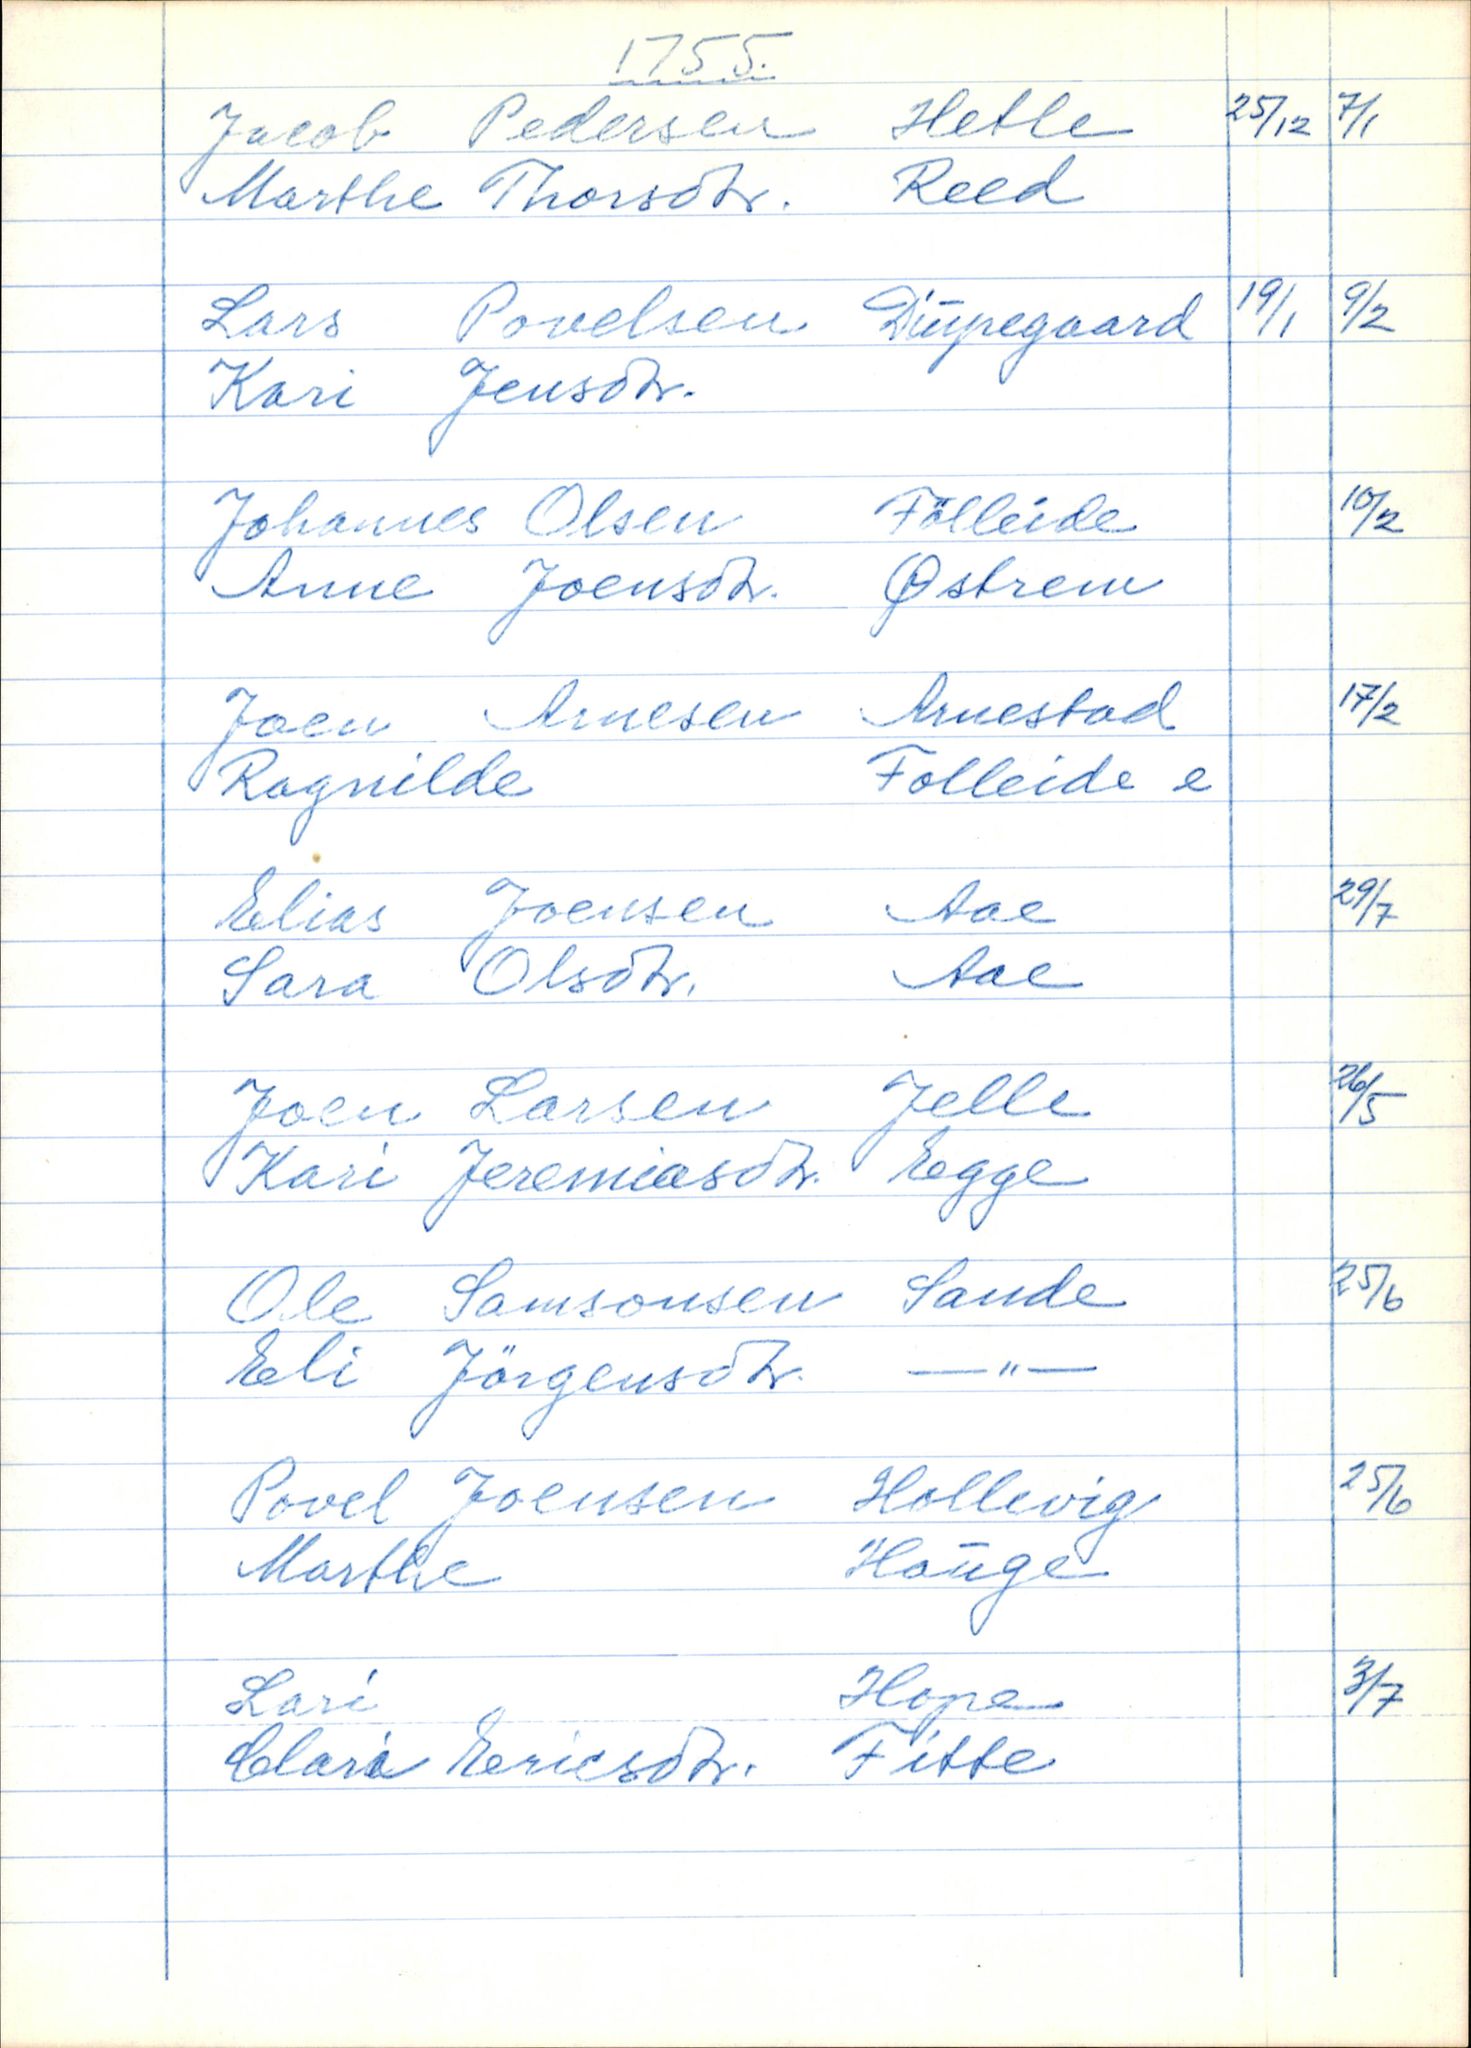 1755.
Jacob Pedersen Hetle 25/12 7/1
Marthe Thorsdtr. Reed
Lars Povelsen Düpegaard 19/1 9/2
Kari Jensdtr.
Johannes Olsen Fölleide 10/2
Anne Joensdtr. Østrem
Joen Arnesen Arnestad 17/2
Ragnilde Folleide e
Elias Joensen Aae 29/7
Sara Olsdtr. Aae
Joen Larsen Jelle 26/5
Kari Jeremiasdtr. Egge
Ole Samsonsen Sande 25/6
Eli Jörgensdtr. —"—
Povel Joensen Hollevig 25/6
Marthe Haüge
Lari Hope 3/7
Clara Ericsdtr. Fitte